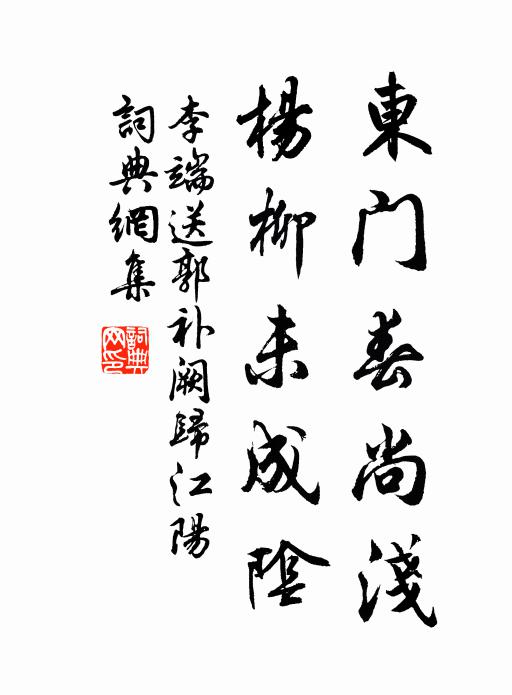 東门春尚淺
楊柳未成陰
李端送郭补阙歸江陽
詞典網集
詞典网印